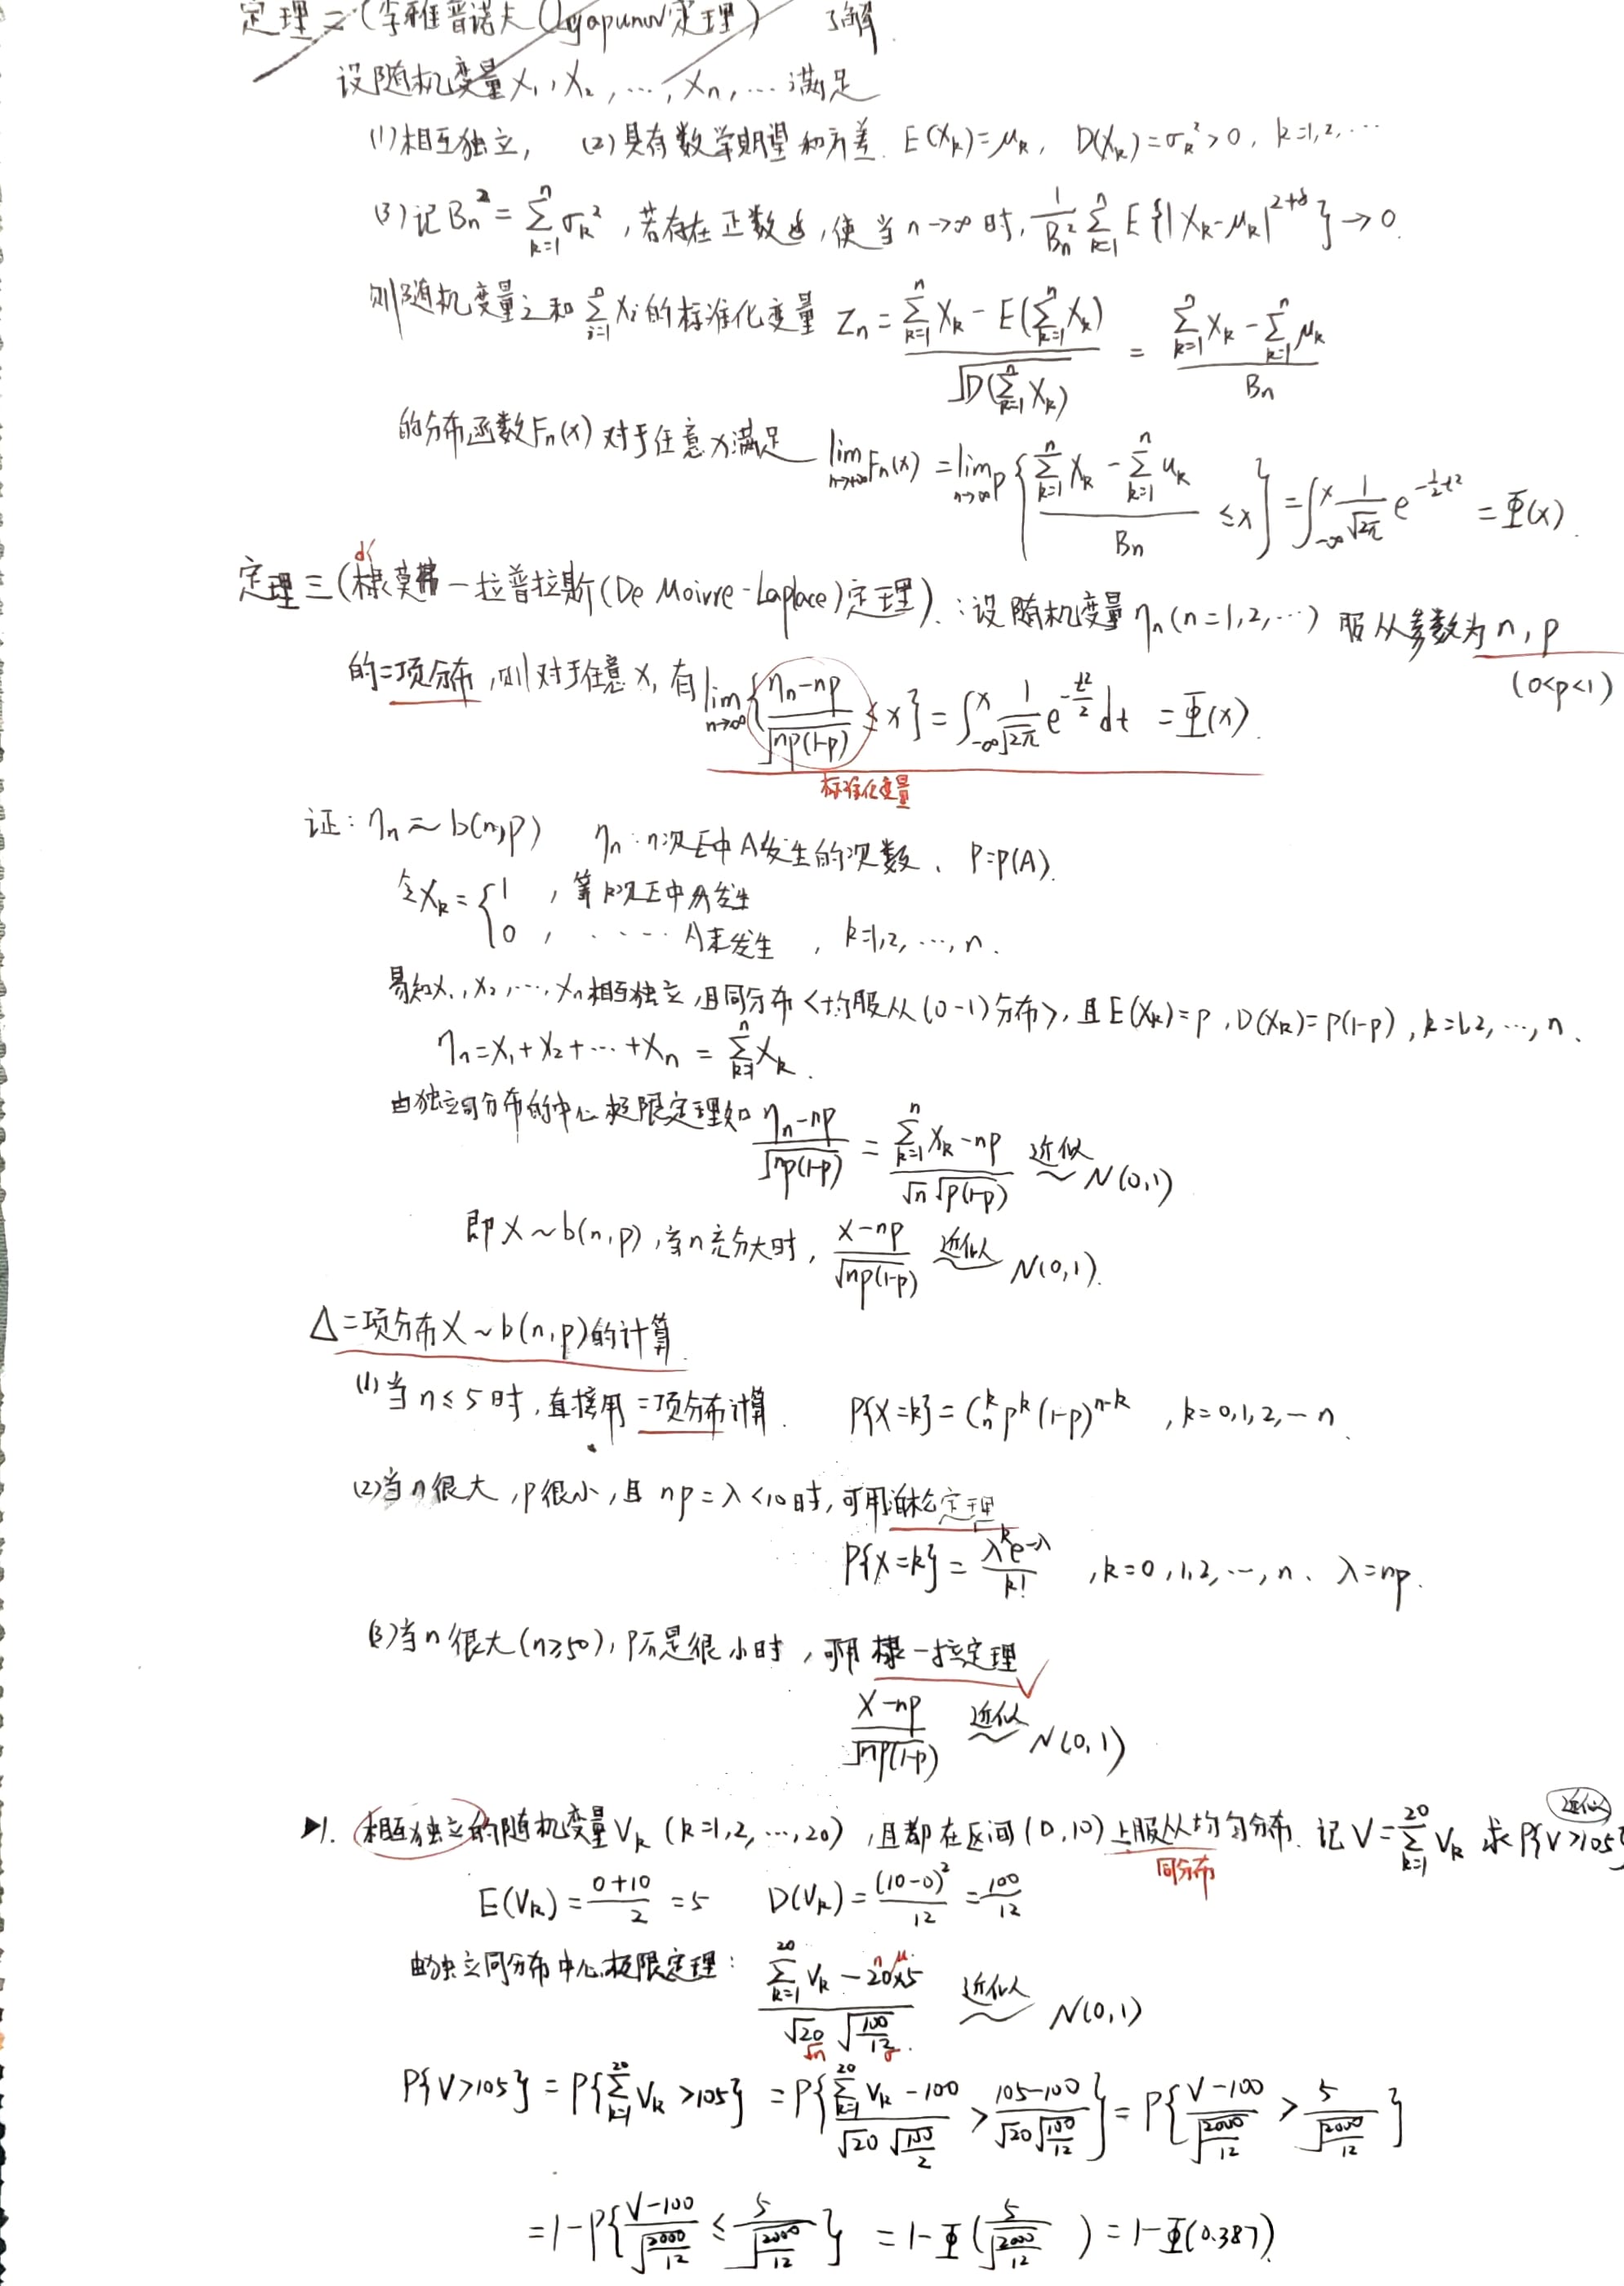 定理二(李雅普诺夫(Lyapunov)定理) 了解
设随机变量X₁, X₂, …, Xₙ, … 满足
(1)相互独立, (2)具有数学期望和方差. E(Xₖ)=μₖ, D(Xₖ)=σₖ²>0, k=1,2,…
(3)记Bₙ²=∑ₖ₌₁ⁿσₖ², 若存在正数δ, 使当n→∞时, 1/Bₙ² ∑ₖ₌₁ⁿ E{|Xₖ-μₖ|^(2+δ)}→0.
则随机变量之和∑ᵢ₌₁ⁿXᵢ的标准化变量 Zₙ = (∑ₖ₌₁ⁿXₖ - E(∑ₖ₌₁ⁿXₖ))/√D(∑ₖ₌₁ⁿXₖ) = (∑ₖ₌₁ⁿXₖ - ∑ₖ₌₁ⁿμₖ)/Bₙ
的分布函数Fₙ(x)对于任意x满足 lim(n→+∞)Fₙ(x) = lim(n→∞)P{(∑ₖ₌₁ⁿXₖ - ∑ₖ₌₁ⁿuₖ)/Bₙ ≤x} = ∫₋∞ˣ 1/√2π e^(-½t²) = Φ(x).
定理三(棣莫弗-拉普拉斯(De Moivre-Laplace)定理).:设随机变量ηₙ(n=1,2,…) 服从参数为n, p
di
(0<p<1)
的二项分布, 则对于任意x, 有 lim(n→∞){(ηₙ-np)/√np(1-p) ≤ x} = ∫₋∞ˣ 1/√2π e^(-t²/2) dt = Φ(x).
标准化变量
证: ηₙ ~ b(n,p) ηₙ: n次E中A发生的次数、 P=P(A).
令Xₖ={1 , 第k次E中A发生
0 , ····· A未发生 , k=1,2,…,n.
易知X₁, X₂, …, Xₙ相互独立, 且同分布<均服从(0-1)分布>, 且E(Xₖ)=p, D(Xₖ)=p(1-p), k=1,2,…,n.
ηₙ=X₁+X₂+…+Xₙ = ∑ₖ₌₁ⁿXₖ.
由独立同分布的中心极限定理知 (ηₙ-np)/√np(1-p) = (∑ₖ₌₁ⁿXₖ-np)/(√n √p(1-p)) 近似~ N(0,1)
即X~b(n,p), 当n充分大时, (X-np)/√np(1-p) 近似~ N(0,1).
Δ二项分布X~b(n,p)的计算.
(1)当n≤5时, 直接用二项分布计算. P{X=k}=Cₙᵏpᵏ(1-p)ⁿ⁻ᵏ , k=0,1,2,…n.
(2)当n很大, p很小, 且np=λ<10时, 可用泊松定理
P{X=k}=λᵏe^-λ/k! , k=0,1,2,…,n、 λ=np.
(3)当n很大(n≥50), p不是很小时, 可用棣-拉定理
(X-np)/√np(1-p) 近似~ N(0,1)
1. 相互独立的随机变量Vₖ (k=1,2,…,20), 且都在区间(0,10)上服从均匀分布. 记V=∑ₖ₌₁²⁰Vₖ 求P{V>105}
近似
同分布
E(Vₖ)=(0+10)/2=5 D(Vₖ)=(10-0)²/12=100/12
由独立同分布中心极限定理: (∑ₖ₌₁²⁰Vₖ-20×5)/(√20 √(100/12)) 近似~ N(0,1)
n μ
√n σ
P{V>105} = P{∑ₖ₌₁²⁰Vₖ>105} = P{(∑ₖ₌₁²⁰Vₖ-100)/(√20 √(100/2)) > (105-100)/(√20√(100/12))} = P{(V-100)/√(2000/12) > 5/√(2000/12)}
=1-P{(V-100)/√(2000/12) ≤ 5/√(2000/12)} = 1-Φ(5/√(2000/12)) = 1-Φ(0.387).